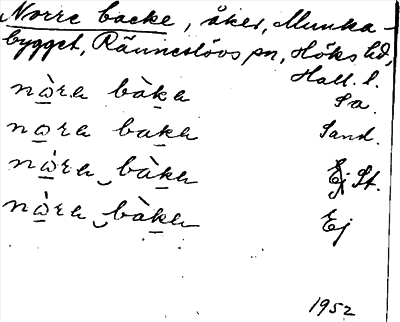 Norre backe, åker, Munka-
bygget, Ränneslövs sn, Höks hd,
Hall. l.
nò̲ra bàk̲a Sa.
no̲ra bak̲a Sand.
nò̲ra ‿bàk̲a St.
nò̲ra ‿bàk̲a Ej
1952